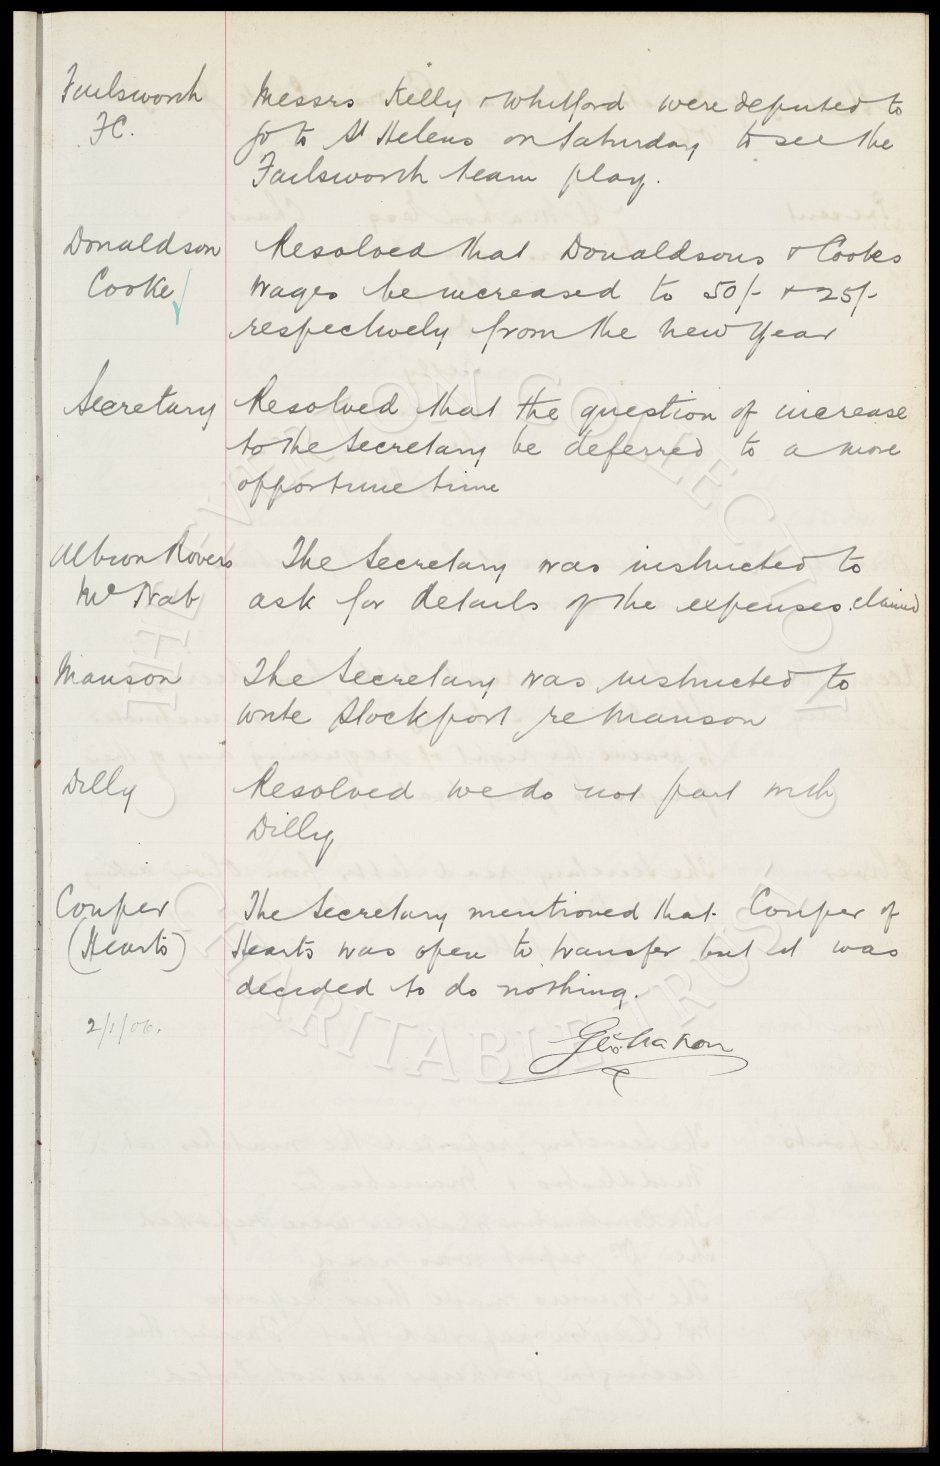 Failsworth
FC.
Messrs Kelly & Whitford were deputed to
go to St Helens on Saturday to see the
Failsworth team play.
Donaldson
Cooke
Resolved that Donaldsons & Cooks
wages be increased to 50/- & 25/-
respectively from the New Year
Secretary
Resolved that the question of increase
to the Secretary be deferred to a more
opportune time
Albion Rovers
Mc Nab
The Secretary was instructed to
ask for details of the expenses claimed
Manson
The Secretary was instructed to
write Stockport re Manson
Dilly
Resolved we do not part with
Dilly
Couper
(Hearts)
The Secretary mentioned that Couper of
Hearts was open to transfer but it was
decided to do nothing.
2/1/06.
Geo Mahon
THE EVERTON COLLECTION
CHARITABLE TRUST